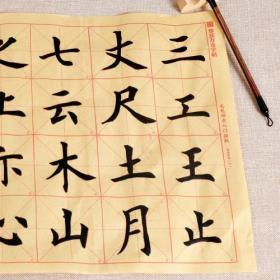 三工王止
丈尺土月
七云木山
之上示心